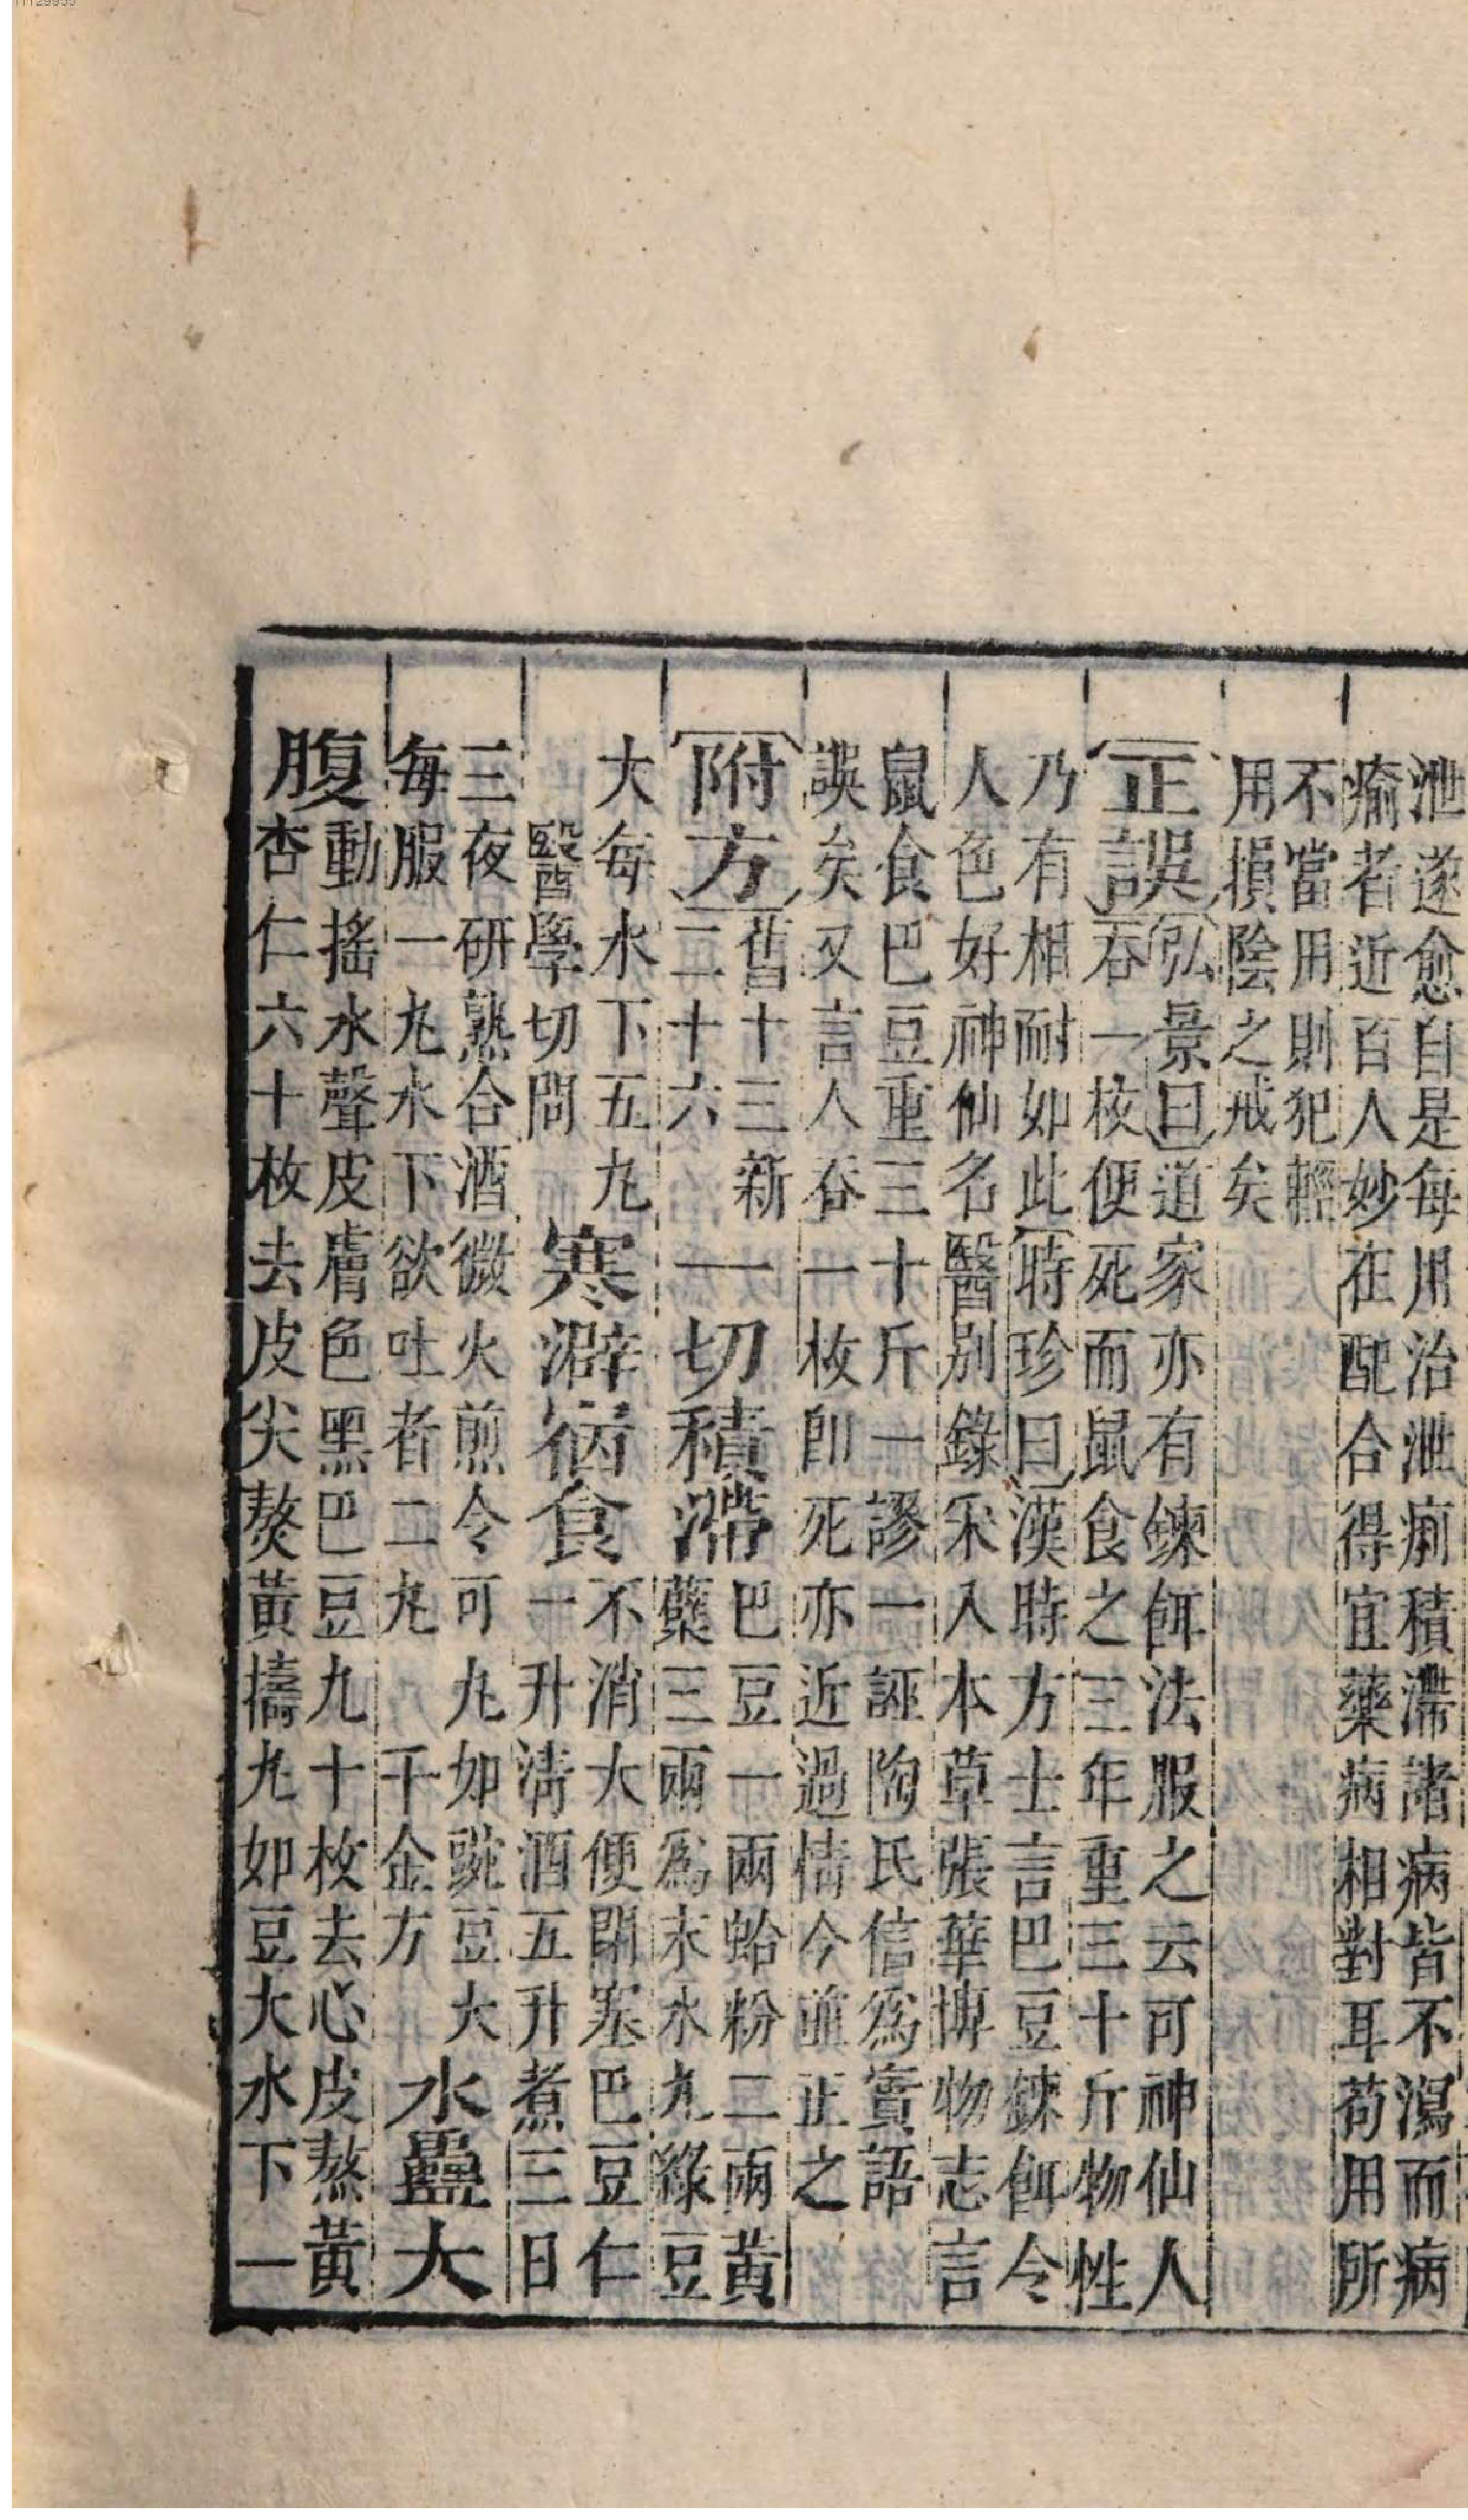 泄遂愈自是每用治泄痢積滯諸病皆不瀉而病
瘉者近百人妙在配合得宜藥病相對耳苟用所
不當用則犯輕
用損陰之戒矣
正誤
弘景曰道家亦有鍊餌法服之云可神仙人
吞一枚便死而鼠食之三年重三十斤物性
乃有相耐如此時珍曰漢時方士言巴豆鍊餌令
人色好神仙名醫別錄采入本草張華博物志言
鼠食巴豆重三十斤一謬一誣陶氏信爲實語
誤矣又言人吞一枚即死亦近過情今並正之
附方
舊十三新
二十六
一切積滯
巴豆一兩蛤粉二兩黃
蘗三兩爲末水丸綠豆
大每水下五丸
醫學切問
寒澼宿食
不消大便閉塞巴豆仁
一升淸酒五升煮三日
三夜研熟合酒微火煎令可丸如豌豆大
每服一丸水下欲吐者二丸 千金方
水蠱大
腹
動搖水聲皮膚色黑巴豆九十枚去心皮熬黃
杏仁六十枚去皮尖熬黃擣丸如豆大水下一
11129955